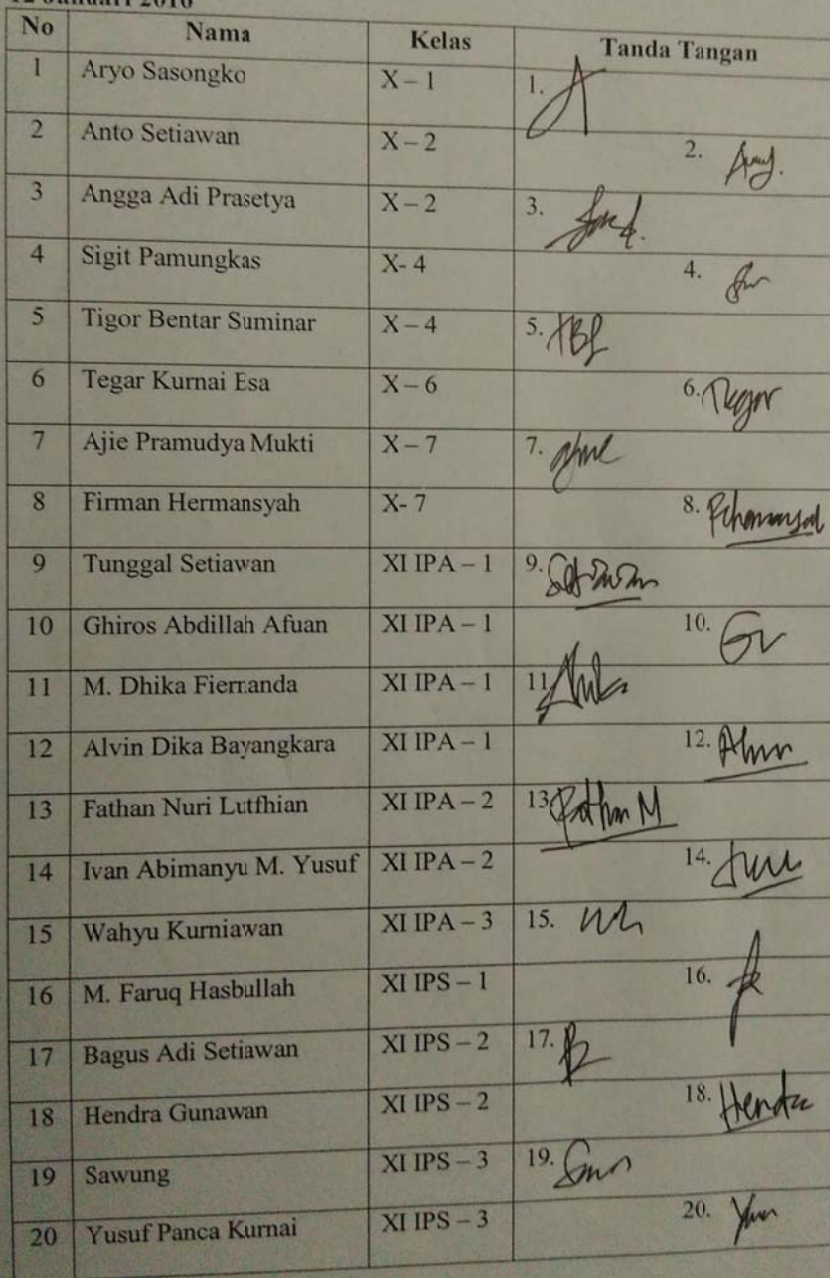 12 Januari 2016
No Nama Kelas Tanda Tangan
1 Aryo Sasongko X – 1 1.
2 Anto Setiawan X – 2 2.
3 Angga Adi Prasetya X – 2 3.
4 Sigit Pamungkas X- 4 4.
5 Tigor Bentar Suminar X – 4 5.
6 Tegar Kurnai Esa X – 6 6. Tegar
7 Ajie Pramudya Mukti X – 7 7.
8 Firman Hermansyah X- 7 8.
9 Tunggal Setiawan XI IPA – 1 9.
10 Ghiros Abdillah Afuan XI IPA – 1 10.
11 M. Dhika Fierranda XI IPA – 1 11
12 Alvin Dika Bayangkara XI IPA – 1 12.
13 Fathan Nuri Lutfhian XI IPA – 2 13 Fathan M
14 Ivan Abimanyu M. Yusuf XI IPA – 2 14.
15 Wahyu Kurniawan XI IPA – 3 15.
16 M. Faruq Hasbullah XI IPS – 1 16.
17 Bagus Adi Setiawan XI IPS – 2 17.
18 Hendra Gunawan XI IPS – 2 18. Hendra
19 Sawung XI IPS – 3 19.
20 Yusuf Panca Kurnai XI IPS – 3 20.